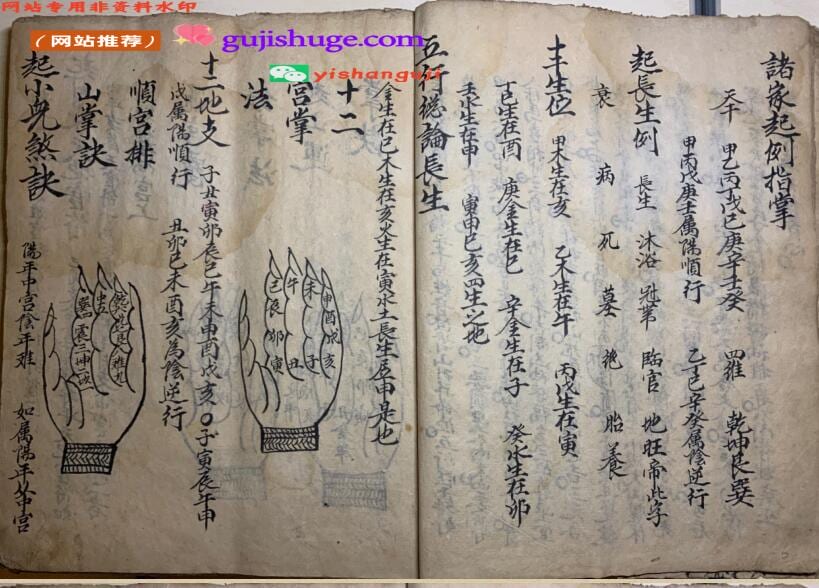 网站专用非资料水印
（网站推荐）
gujishuge.com
yishanguji
諸家起例指掌
天干 甲乙丙戊己庚辛壬癸 四維 乾坤艮巽
甲丙戊庚壬屬陽順行 乙丁己辛癸屬陰逆行
起長生例 長生 沐浴 冠帶 臨官 地旺帝此字
衰 病 死 墓 絶 胎 養
十干生位 甲木生在亥 乙木生在午 丙戊生在寅
丁己生在酉 庚金生在巳 辛金生在子 癸水生在卯
壬水生在申 寅申巳亥四生之地
五行總論長生
金生在巳木生在亥火生在寅水土長生居申是也
十二宮掌法
申酉戌亥
未子
午丑
巳辰卯寅
十二地支 子丑寅卯辰巳午未申酉戌亥○子寅辰午申
戌屬陽順行 丑卯巳未酉亥為陰逆行
順宮排山掌訣
中五
巽四震三坤二坎
起小兒煞訣 陽年中宮陰年離 如屬陽年中宮